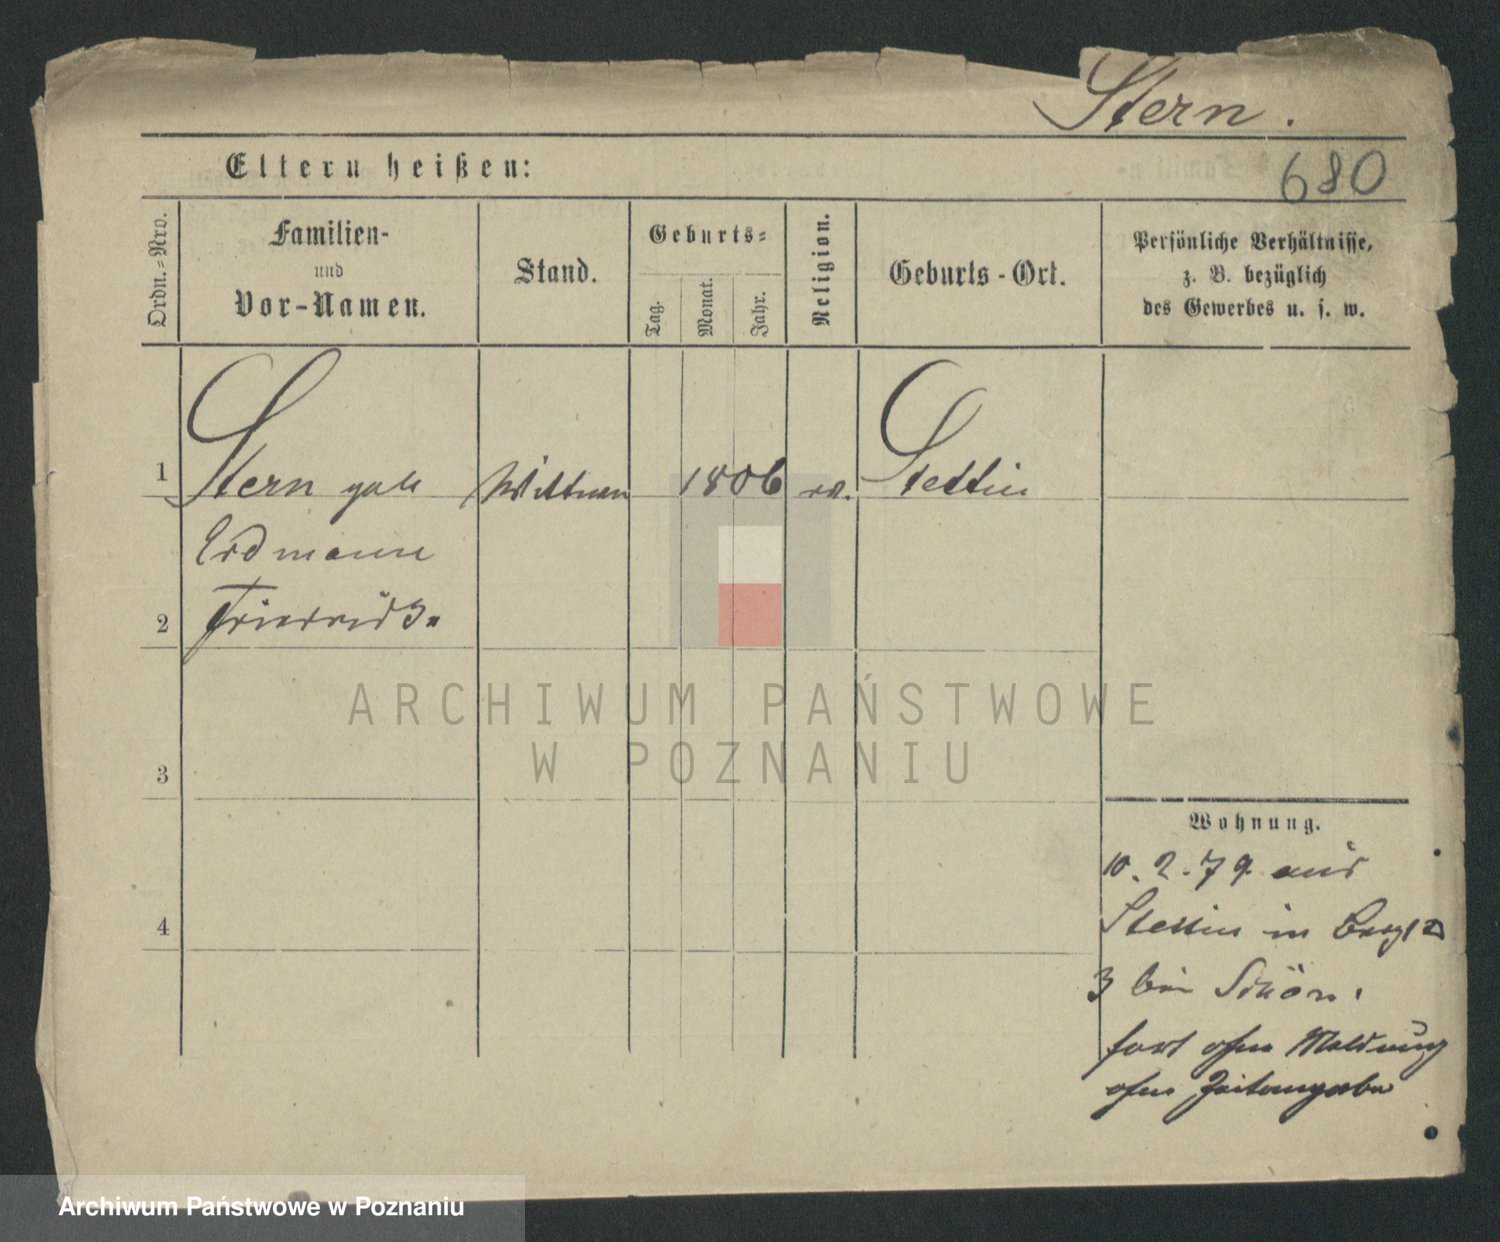 Stern.
680
Eltern heißen:
Ordn.-Nro.
Familien-
und
Vor-Namen.
Stand.
Geburts-
Tag.
Monat.
Jahr.
Religion.
Geburts-Ort.
Persönliche Verhältnisse,
z. B. bezüglich
des Gewerbes u. s. w.
1 Stern geb Wittwe 1806 ev. Stettin
Erdmann
2
3
4
Wohnung.
10. 2. 79 aus
Stettin in
3 bei Schön.
fort ohne Meldung
ohne Zeitangabe
ARCHIWUM PAŃSTWOWE
W POZNANIU
Archiwum Państwowe w Poznaniu